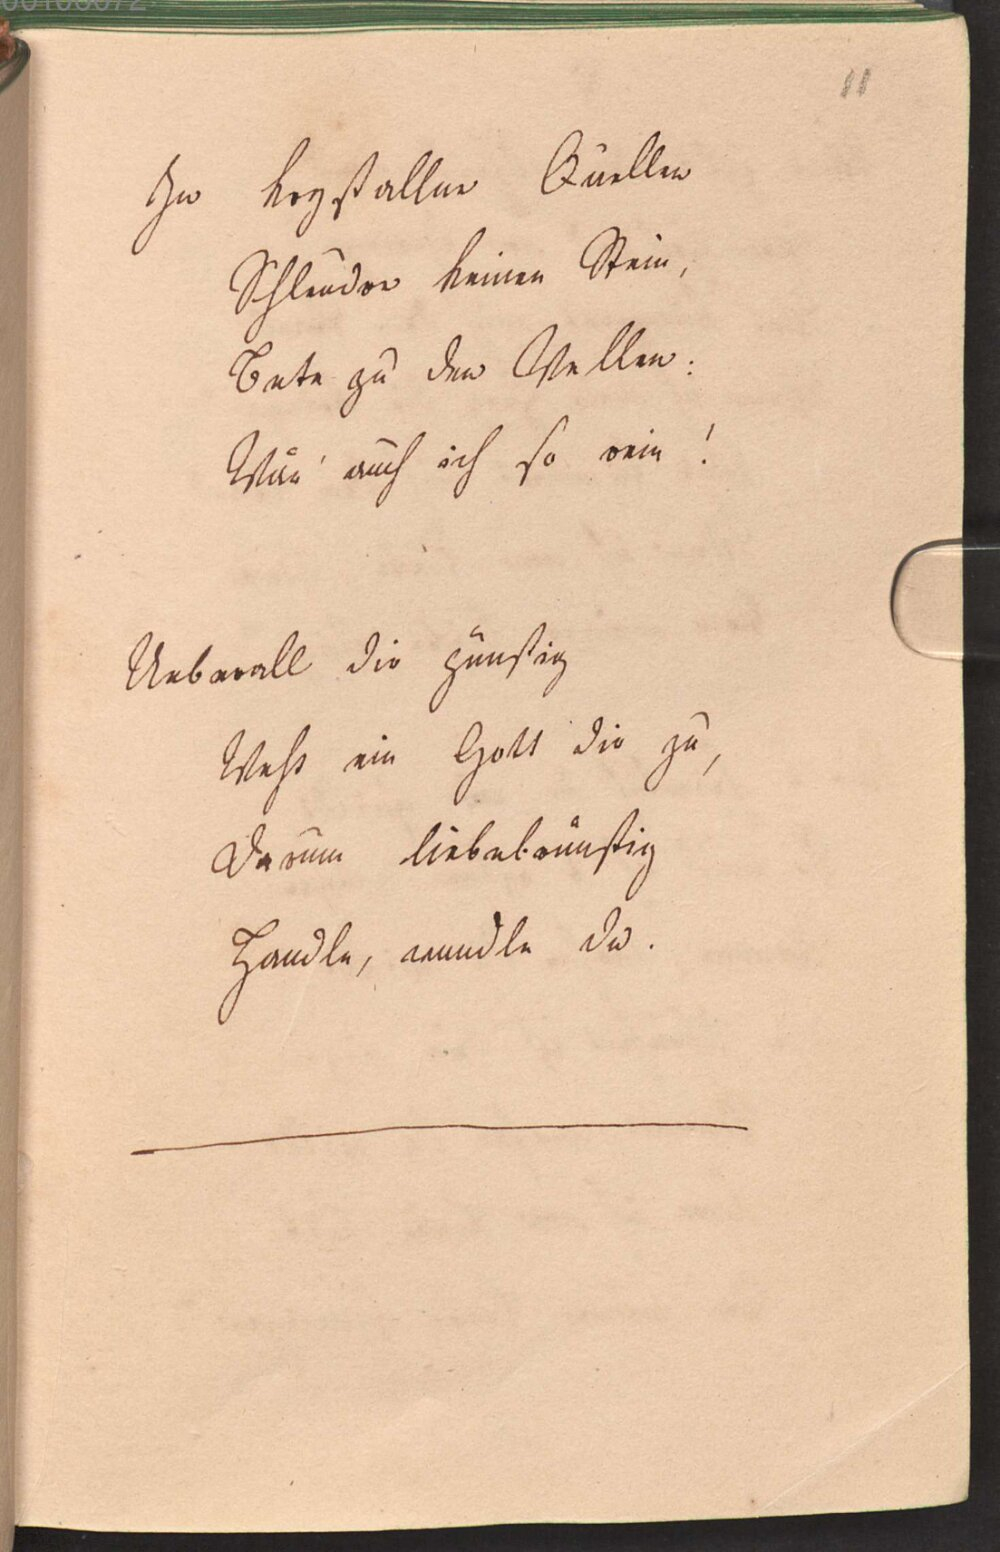 11
In krystallne Quellen
Schleudre keinen Stein,
Bete zu den Wellen:
Wär' auch ich so rein!
Ueberall dir günstig
Weht ein Gott dir zu,
Darum liebebrünstig
Handle, wandle du.